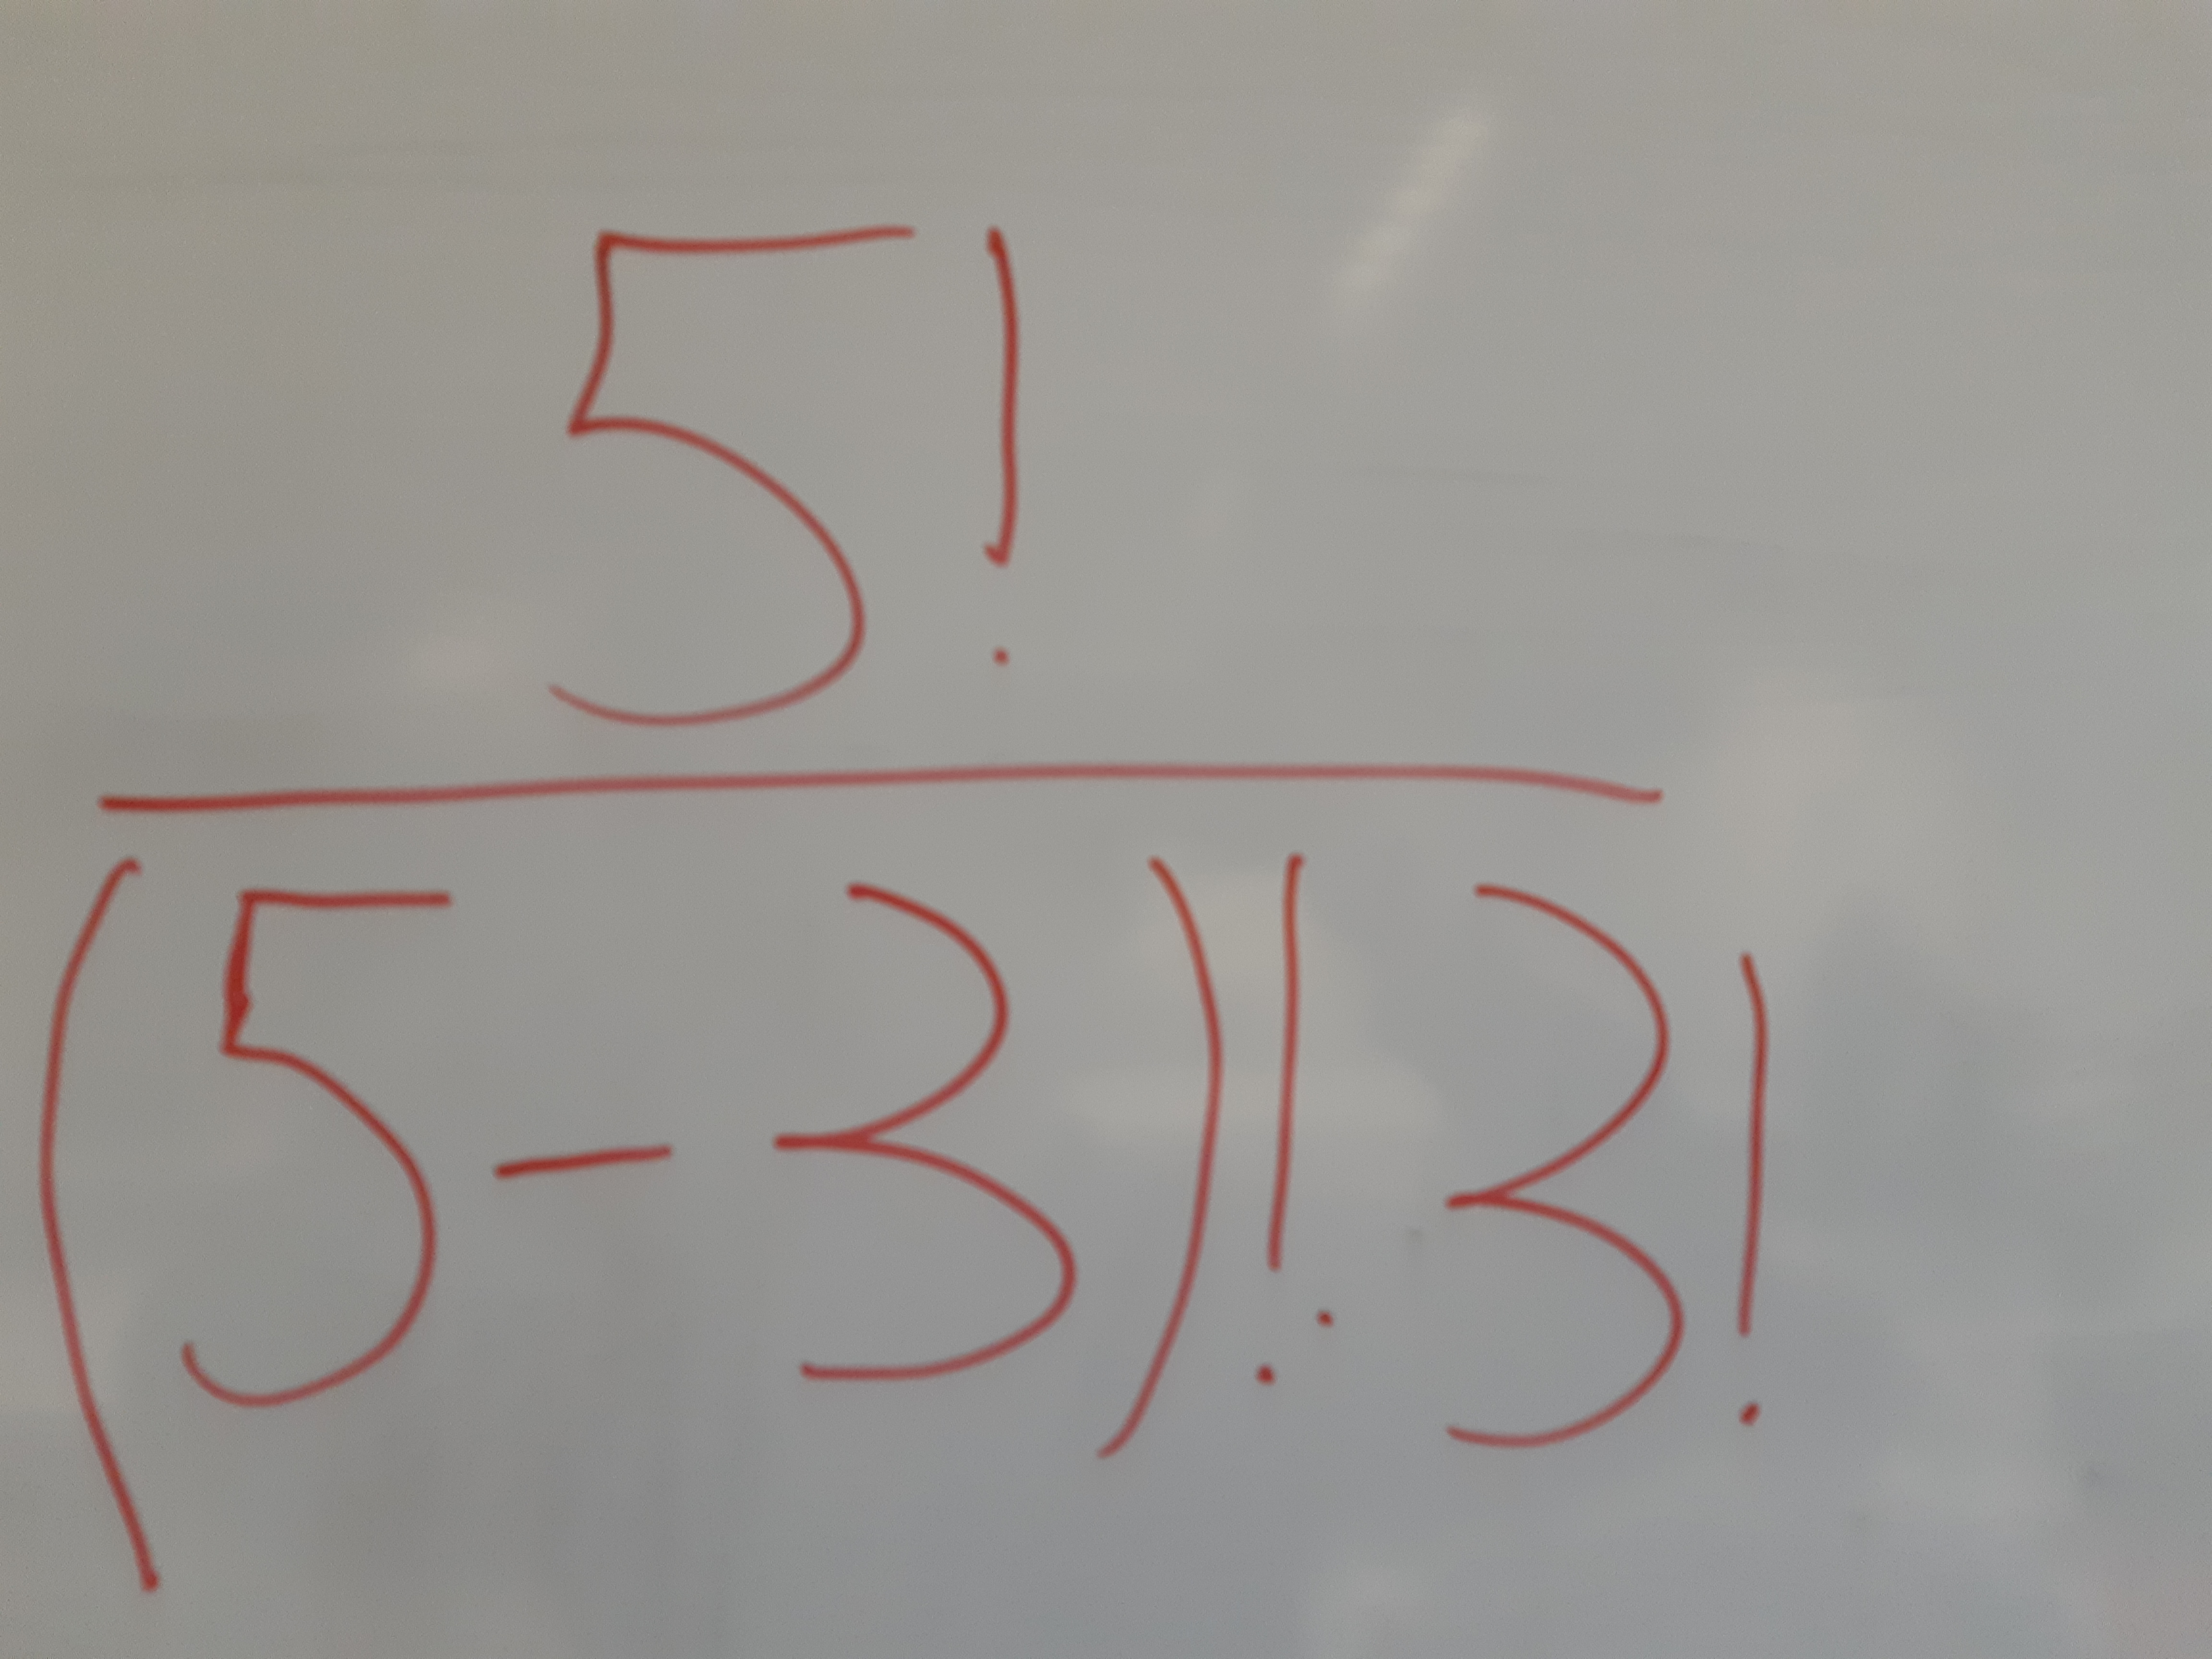 5!
(5-3)!·3!